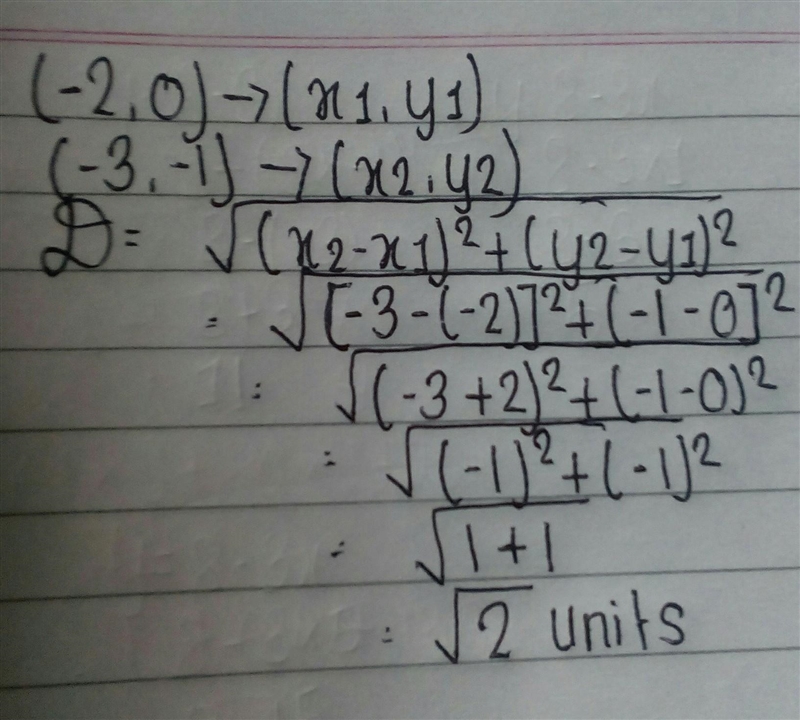 (-2,0) → (x1,y1)
(-3,-1) → (x2,y2)
D = √(x2-x1)²+(y2-y1)²
= √[-3-(-2)]²+(-1-0]²
= √(-3+2)²+(-1-0)²
= √(-1)²+(-1)²
= √1+1
= √2 units